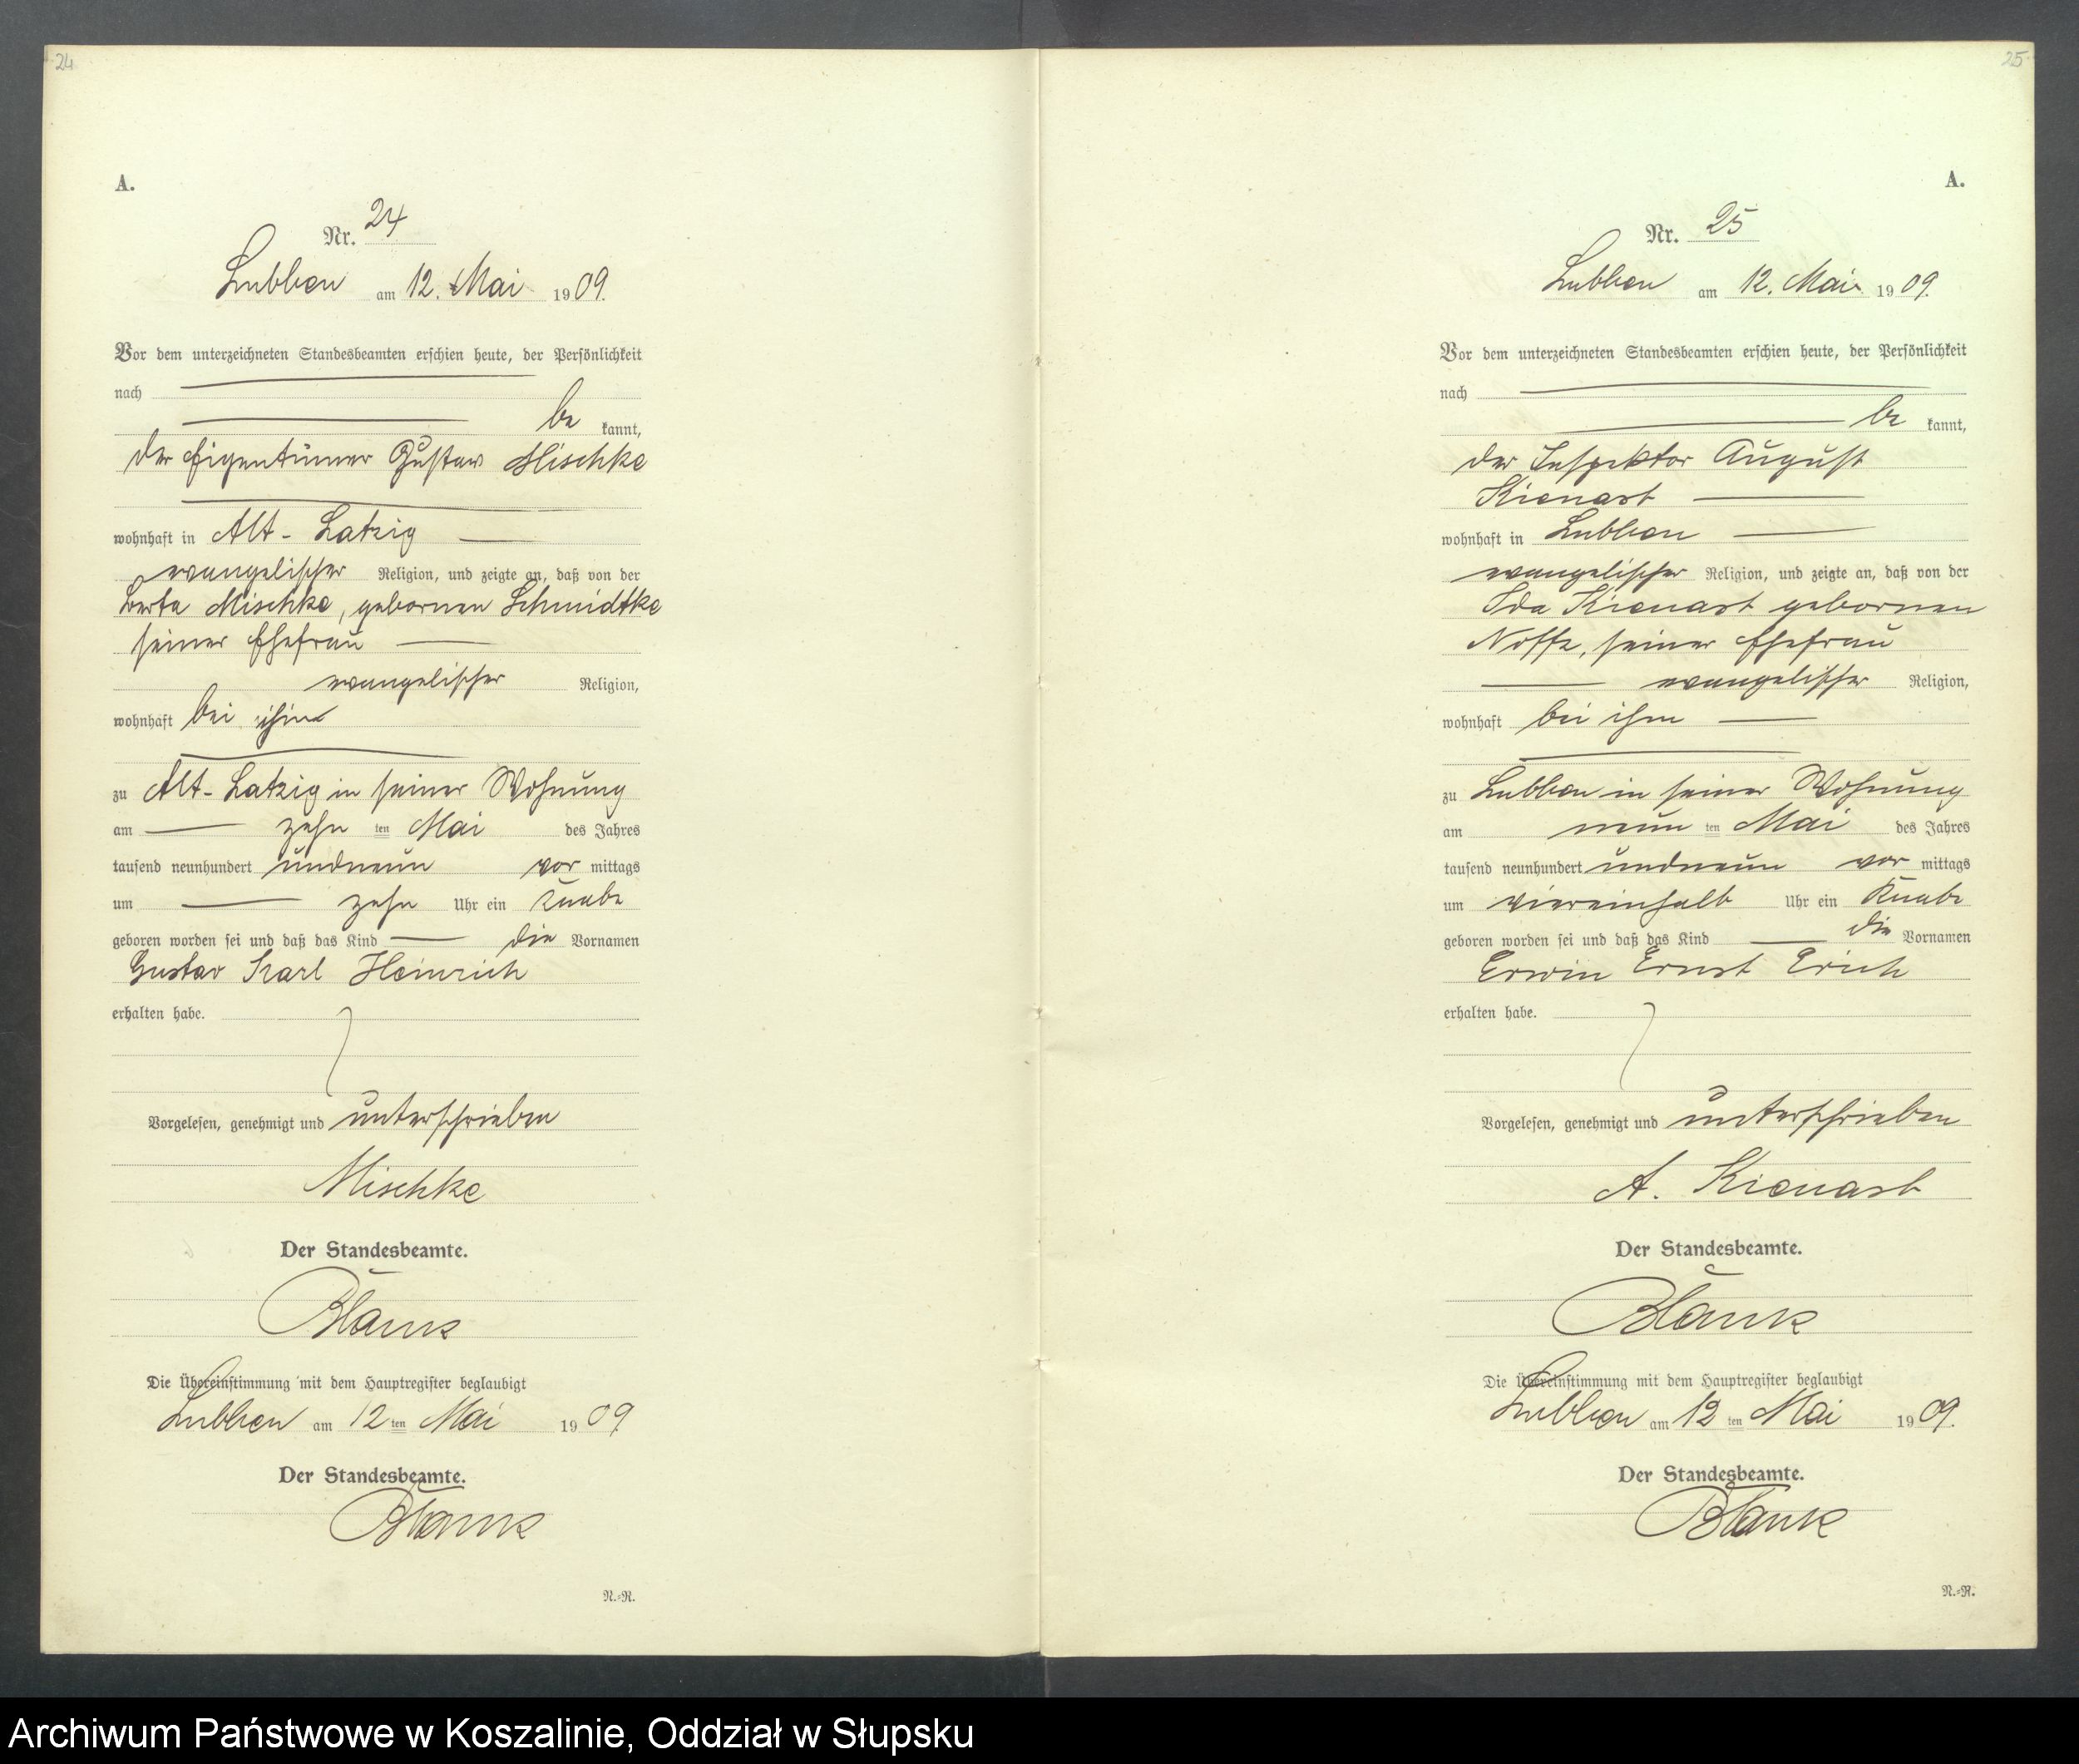 24
A.
Nr. 24
Lubben am 12. Mai 1909.
Vor dem unterzeichneten Standesbeamten erschien heute, der Persönlichkeit
nach
be kannt,
der Eigentümer Gustav Mischke
wohnhaft in Alt-Latzig
evangelischer Religion, und zeigte an, daß von der
Berta Mischke, gebornen Schmidtke
seiner Ehefrau
evangelischer Religion,
wohnhaft bei ihm
zu Alt-Latzig in seiner Wohnung
am zehn ten Mai des Jahres
tausend neunhundert undneun vor mittags
um zehn Uhr ein Knabe
geboren worden sei und daß das Kind die Vornamen
Gustav Karl Heinrich
erhalten habe.
Vorgelesen, genehmigt und unterschrieben
Mischke
Der Standesbeamte.
Blank
Die Übereinstimmung mit dem Hauptregister beglaubigt
Lubben am 12 ten Mai 1909.
Der Standesbeamte.
Blank
N.-R.
25
A.
Nr. 25
Lubben am 12. Mai 1909.
Vor dem unterzeichneten Standesbeamten erschien heute, der Persönlichkeit
nach
be kannt,
der Inspektor August
Kienast
wohnhaft in Lubben
evangelischer Religion, und zeigte an, daß von der
Ida Kienast gebornen
Noffz, seiner Ehefrau
evangelischer Religion,
wohnhaft bei ihm
zu Lubben in seiner Wohnung
am neun ten Mai des Jahres
tausend neunhundert undneun vor mittags
um viereinhalb Uhr ein Knabe
geboren worden sei und daß das Kind die Vornamen
Erwin Ernst Erich
erhalten habe.
Vorgelesen, genehmigt und unterschrieben
A. Kienast
Der Standesbeamte.
Blank
Die Übereinstimmung mit dem Hauptregister beglaubigt
Lubben am 12 ten Mai 1909.
Der Standesbeamte.
Blank
N.-R.
Archiwum Państwowe w Koszalinie, Oddział w Słupsku